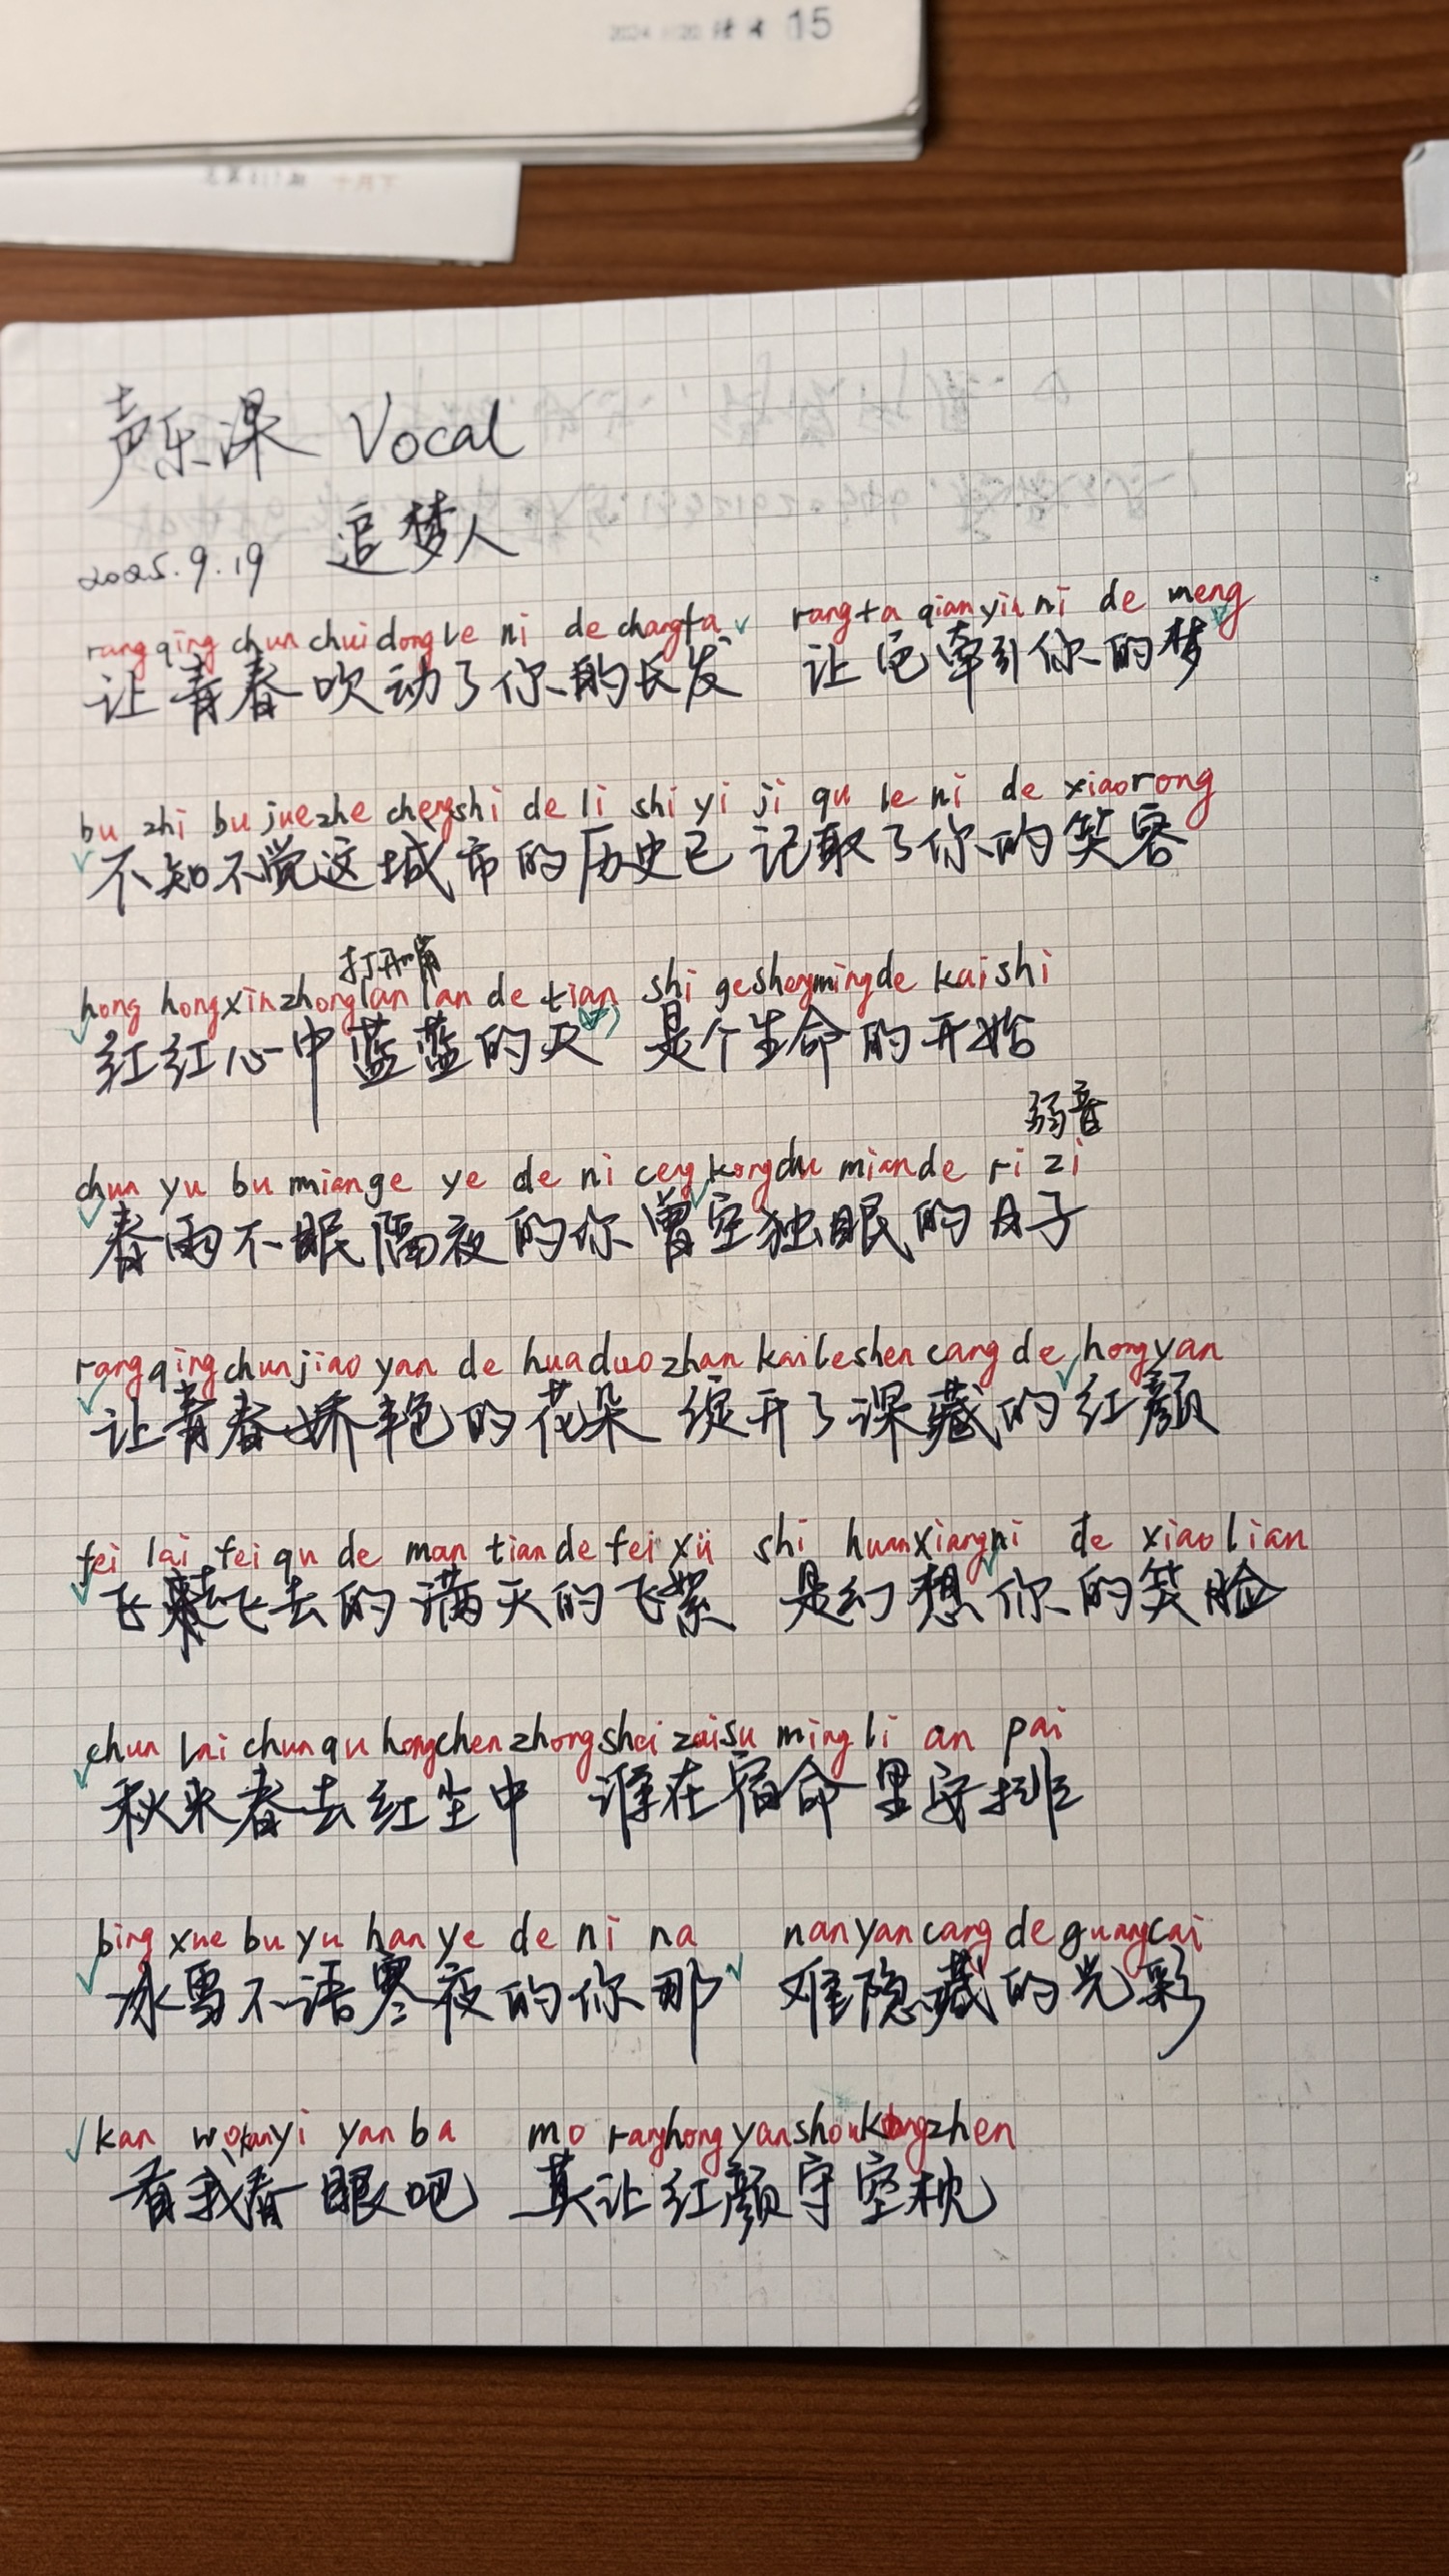 15
声乐课 Vocal
2025.9.19 追梦人
rang qing chun chui dong le ni de chang fa rang ta qian yin ni de meng
让青春吹动了你的长发 让它牵引你的梦
bu zhi bu jue zhe cheng shi de li shi yi ji qu le ni de xiao rong
不知不觉这城市的历史已记取了你的笑容
打开嘴
hong hong xin zhong lan lan de tian shi ge sheng ming de kai shi
红红心中蓝蓝的天 是个生命的开始
弱音
chun yu bu mian ge ye de ni ceng kong du mian de ri zi
春雨不眠隔夜的你曾空独眠的日子
rang qing chun jiao yan de hua duo zhan kai le shen cang de hong yan
让青春娇艳的花朵 绽开了深藏的红颜
fei lai fei qu de man tian de fei xü shi huan xiang ni de xiao lian
飞来飞去的满天的飞絮 是幻想你的笑脸
chun lai chun qu hong chen zhong shei zai su ming li an pai
秋来春去红尘中 谁在宿命里安排
bing xue bu yu han ye de ni na nan yan cang de guang cai
冰雪不语寒夜的你那 难隐藏的光彩
kan wo kan yi yan ba mo rang hong yan shou kong zhen
看我看一眼吧 莫让红颜守空枕